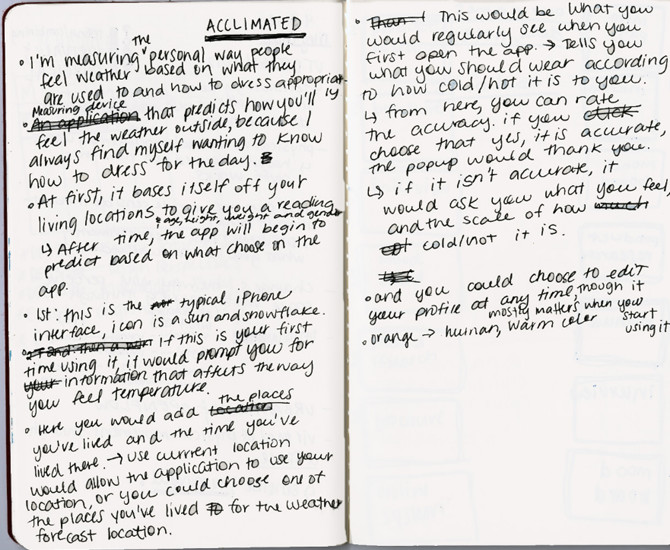 ACCLIMATED
• I'm measuring the personal way people
feel weather based on what they
are used to and how to dress appropriately
Measuring device
• An application that predicts how you'll
feel the weather outside, because I
always find myself wanting to know
how to dress for the day.
• At first, it bases itself off your
living locations to give you a reading
age, height, weight and gender
↳ After time, the app will begin to
predict based on what choose on the
app.
• 1st: this is the typical iPhone
interface, icon is a sun and snowflake.
• If this is your first
time using it, it would prompt you for
your information that affects the way
you feel temperature.
• Here you would add location the places
you've lived and the time you've
lived there. → Use current location
would allow the application to use your
location, or you could choose one of
the places you've lived to for the weather
forecast location.
• Then I This would be what you
would regularly see when you
first open the app. → Tells you
what you should wear according
to how cold/hot it is to you.
↳ from here, you can rate
the accuracy. if you click
choose that yes, it is accurate,
the popup would thank you.
↳ if it isn't accurate, it
would ask you what you feel,
and the scale of how much
cold/hot it is.
• and you could choose to edit
your profile at any time, though it
mostly matters when you start using it
• orange → human, warm color